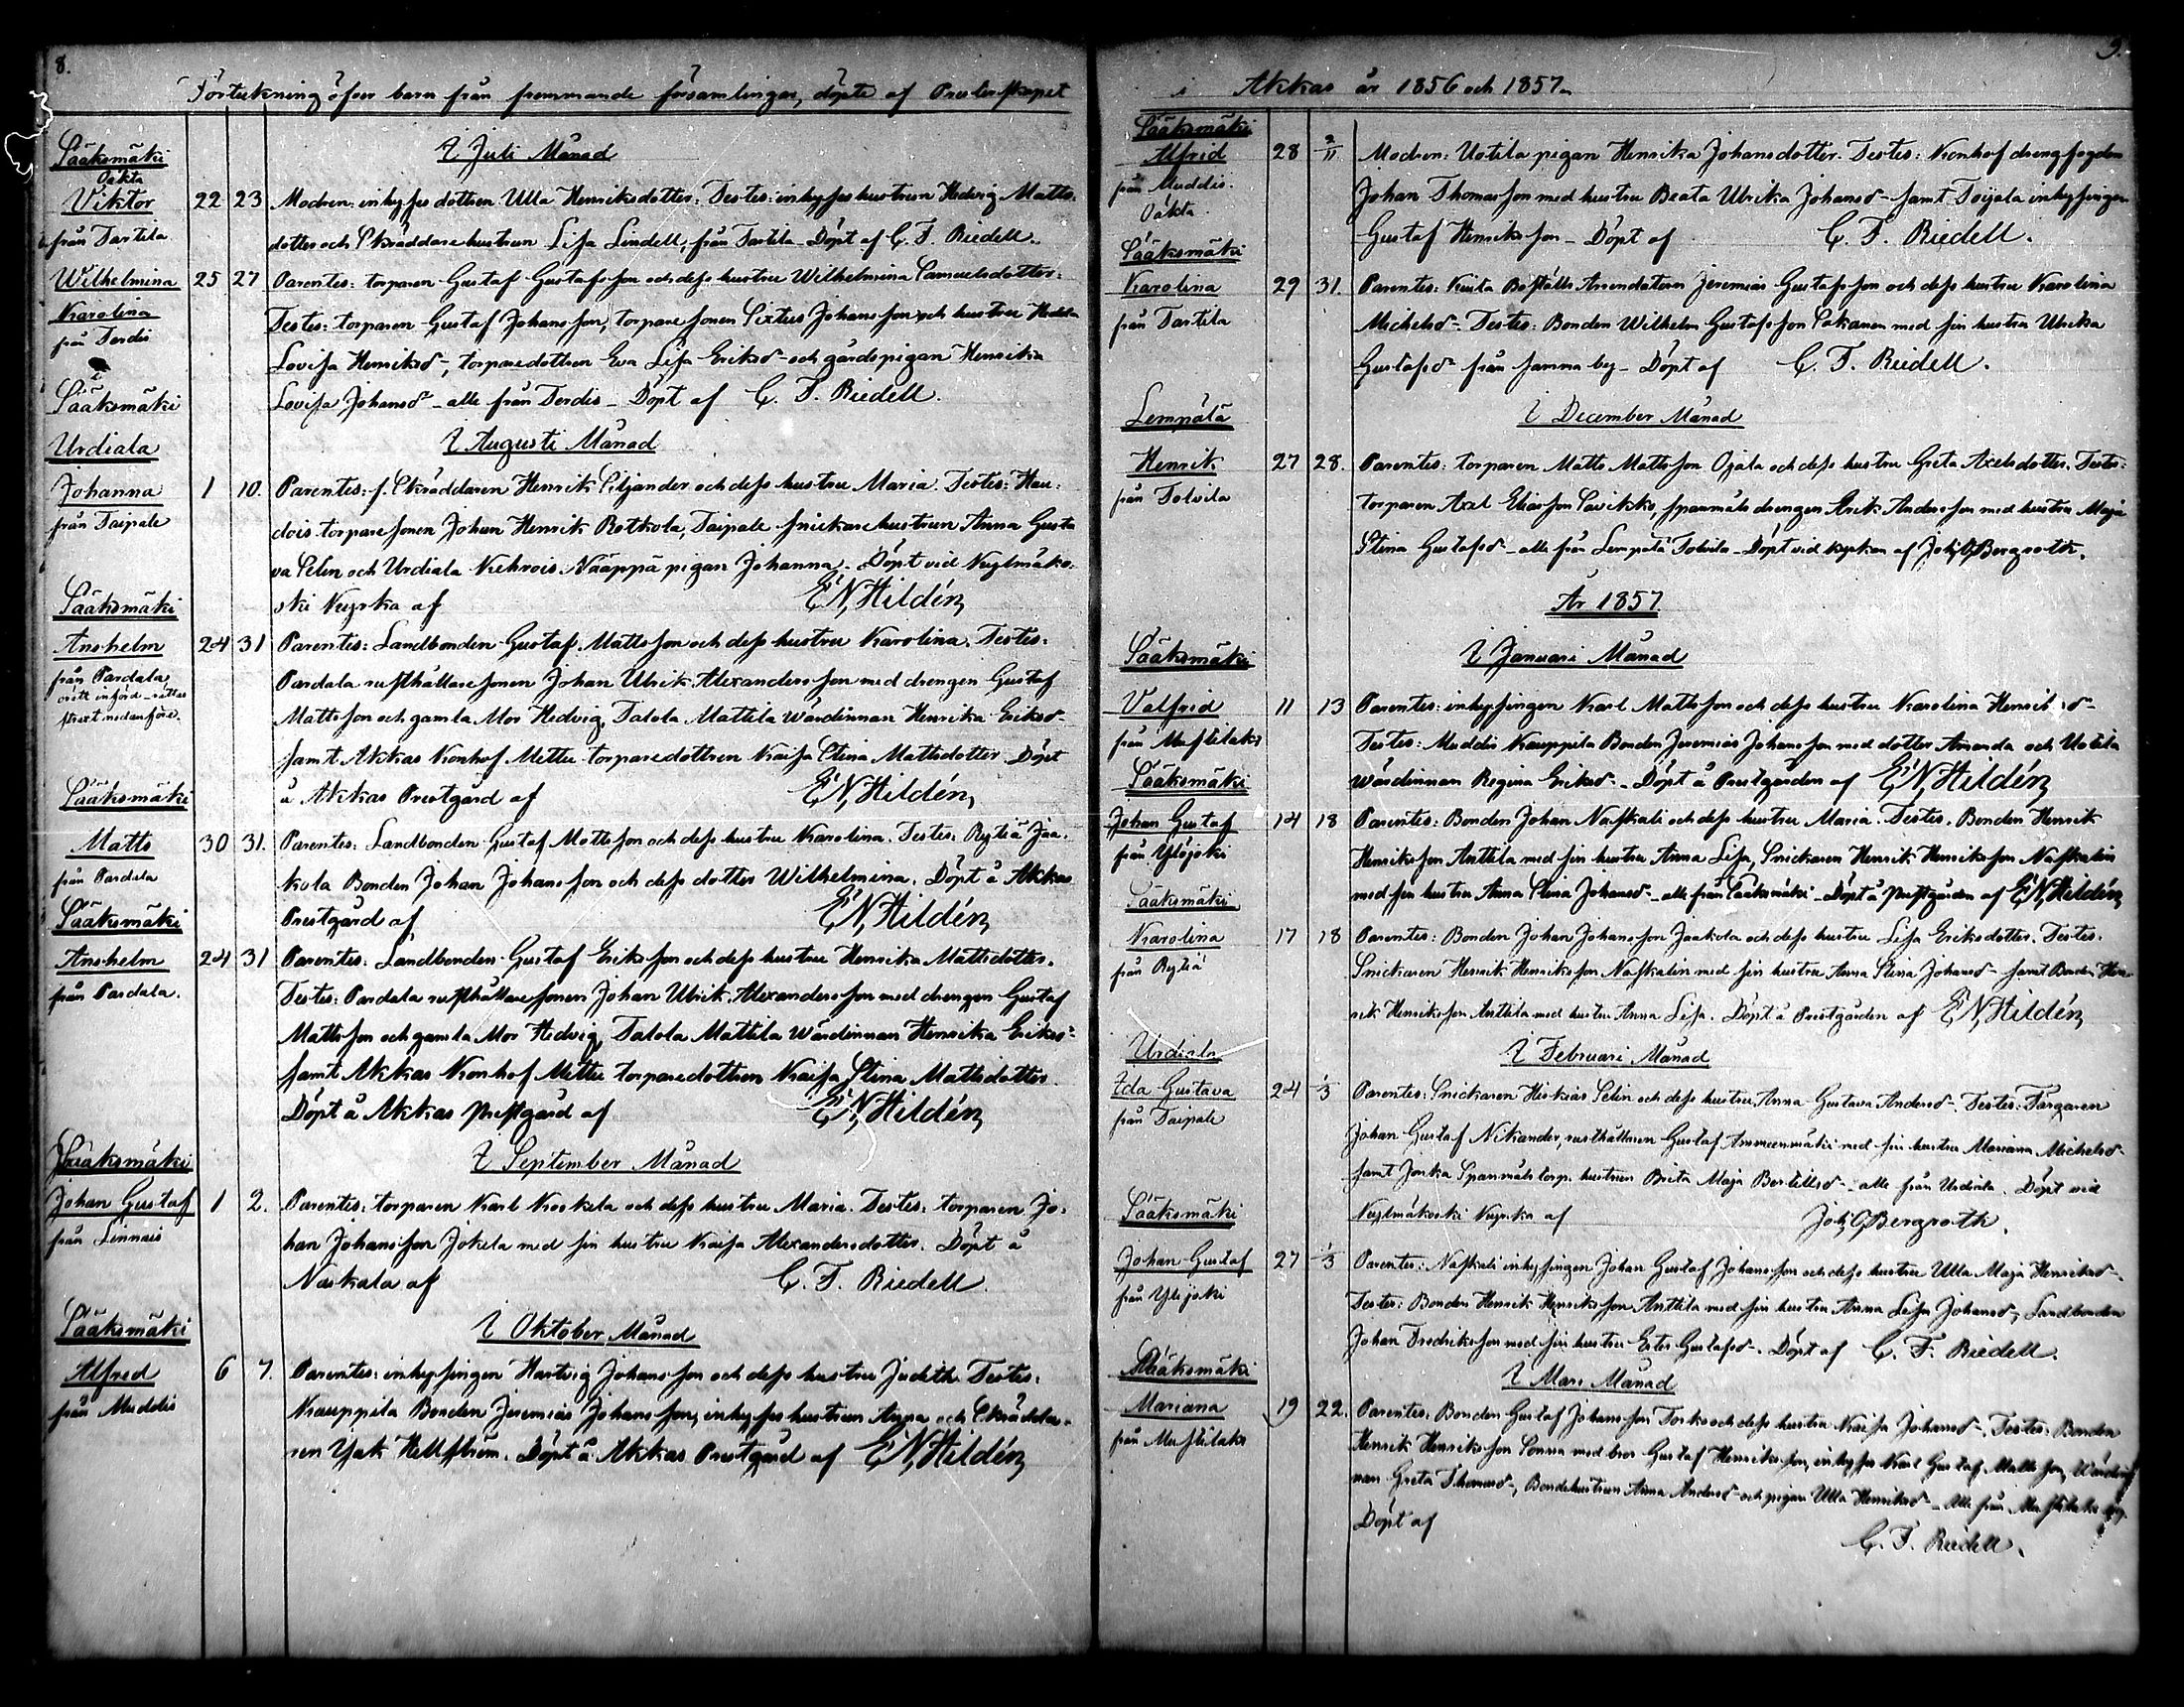 8.
Förteckning öfver barn från främmande församlingar, döpte af Presterskapet
Sääksmäki
I Juli Månad
Oäkta
Viktor 22 23 Modren: inhyses dottren Ulla Henriksdotter. Testes: inhyses hustrun Hedvig Matts-
från Tartila dotter och Skräddare hustrun Lisa Lindell, från Tartila. Döpt af C. F. Riedell.
Wilhelmina 25 27 Parentes: torparen Gustaf Gustafsson och dess hustru Wilhelmina Samuelsdotter.
Karolina Testes: torparen Gustaf Johansson, torpare sonen Sixtus Johansson och hustru Hedda
från Terdis Lovisa Henriksdr, torparedottren Eva Lisa Eriksdr och gårdspigan Henrika
Sääksmäki Lovisa Johansdr alle från Terdis. Döpt af C. F. Riedell.
I Augusti Månad
Urdiala
Johanna 1 10. Parentes: f. Skräddaren Henrik Siljander och dess hustru Maria. Testes: Hau-
från Taipale dois torpare sonen Johan Henrik Rotkola, Taipale snickare hustrun Anna Gusta
va Selin och Urdiala Kehrois Nääppä pigan Johanna. Döpt vid Kylmäko-
Sääksmäki ski Kyrka af E N Hildén
Anshelm 24 31 Parentes: Landbonden Gustaf Mattsson och dess hustru Karolina. Testes:
från Pardala Pardala rusthållare sonen Johan Ulrik Alexandersson med drengen Gustaf
orätt införd rättes
strax nedanföre. Mattsson och gamla Mor Hedvig, Talola Mattila Wärdinnan Henrika Eriksdr
samt Akkas Konhof Mettu torparedottren Kaisa Stina Mattsdotter. Döpt
Sääksmäki å Akkas Prestgård af E N Hildén
Matts 30 31. Parentes: Landbonden Gustaf Mattsson och dess hustru Karolina. Testes: Rytiä Jaa-
från Pardala kola Bonden Johan Johansson och dess dotter Wilhelmina. Döpt å Akkas
Sääksmäki Prestgård af E N Hildén
Anshelm 24 31 Parentes: Landbonden Gustaf Eriksson och dess hustru Henrika Mattsdotter.
från Pardala. Testes: Pardala rusthållare sonen Johan Ulrik Alexandersson med drengen Gustaf
Mattsson och gamla Mor Hedvig, Talola Mattila Wärdinnan Henrika Eriksdr
samt Akkas Konhof Mettu torparedottren Kaisa Stina Mattsdotter.
Döpt å Akkas Prestgård af E N Hildén
Sääksmäki
I September Månad
Johan Gustaf 1 2. Parentes: torparen Karl Koskela och dess hustru Maria. Testes: torparen Jo-
från Linnais han Johansson Jokela med sin hustru Kaisa Alexandersdotter. Döpt å
Naskala af C. F. Riedell.
Sääksmäki
I Oktober Månad
Alfred 6 7. Parentes: inhysingen Hartvig Johansson och dess hustru Judith. Testes:
från Muddis Kauppila Bonden Jeremias Johansson, inhyses hustrun Anna och Skrädda-
ren Isak Hellström. Döpt å Akkas Prestgård af E N Hildén
9.
i Akkas år 1856 och 1857.
Sääksmäki
Alfrid 28 2/11 Modren: Uotila pigan Henrika Johansdotter. Testes: Konhof drengfogden
från Muddis. Johan Thomasson med hustru Beata Ulrika Johansdr samt Toijala inhysingen
Oäkta Gustaf Henriksson. Döpt af C. F. Riedell.
Sääksmäki
Karolina 29 31. Parentes: Kuita Boställs Arrendatoren Jeremias Gustafsson och dess hustru Karolina
från Tartila Michelsdr Testes: Bonden Wilhelm Gustafsson Sakanen med sin hustru Ulrika
Gustafsdr från samma by. Döpt af C. F. Riedell.
Lempälä
I December Månad
Henrik 27 28. Parentes: torparen Matts Mattsson Ojala och dess hustru Greta Axelsdotter. Testes:
från Tolvila torparen Axel Eliasson Savikko, spanmåls drengen Erik Andersson med hustru Maja
Stina Gustafsdr alle från Lempälä Tolvila. Döpt vid kyrkan af Joh. G. Bergroth.
År 1857
Sääksmäki
I Januari Månad
Valfrid 11 13 Parentes: inhysingen Karl Mattsson och dess hustru Karolina Henriksdr
från Mustilaks Testes: Muddis Kauppila Bonden Jeremias Johansson med dotter Amanda och Uotila
Sääksmäki Wärdinnan Regina Eriksdr. Döpt å Prestgården af E N Hildén
Johan Gustaf 14 18 Parentes: Bonden Johan Naskali och dess hustru Maria. Testes: Bonden Henrik
från Ylöjoki Henriksson Anttila med sin hustru Anna Lisa, Snickaren Henrik Henriksson Naskalin
Sääksmäki med sin hustru Anna Stina Johansdr alle från Sääksmäki. Döpt å Prestgården af E N Hildén
Karolina 17 18 Parentes: Bonden Johan Johansson Jaakola och dess hustru Lisa Eriksdotter. Testes:
från Rytiä Snickaren Henrik Henriksson Naskalin med sin hustru Anna Stina Johansdr samt Bonden Hen-
rik Henriksson Anttila med hustru Anna Lisa. Döpt å Prestgården af E N Hildén
Urdiala
I Februari Månad
Ida Gustava 24 1/3 Parentes: Snickaren Hiskias Selin och dess hustru Anna Gustava Andersdr. Testes: Färgaren
från Taipale Johan Gustaf Nikander, rusthållaren Gustaf Ammeenmäki med sin hustru Mariana Michelsdr
samt Jonka Spanmåls torp. hustrun Brita Maja Bertillsdr alle från Urdiala. Döpt vid
Sääksmäki Kylmäkoski Kyrka af Joh. G. Bergroth.
Johan Gustaf 27 1/3 Parentes: Naskali inhysingen Johan Gustaf Johansson och dess hustru Ulla Maja Henriksdr.
från Ylöjoki Testes: Bonden Henrik Henriksson Anttila med sin hustru Anna Lisa Johansdr, Landbonden
Johan Fredriksson med sin hustru Ester Gustafsdr. Döpt af C. F. Riedell.
Sääksmäki
I Mars Månad
Mariana 19 22. Parentes: Bonden Gustaf Johansson Torko och dess hustru Kaisa Johansdr. Testes: Bonden
från Mustilaks Henrik Henriksson Sonna med bror Gustaf Henriksson, inhyses Karl Gustaf Mattsson, Wärdin
nan Greta Thomasdr, Bondehustrun Anna Andersdr och pigan Ulla Henriksdr. Alle från Mustilaks by.
Döpt af
C. F. Riedell.